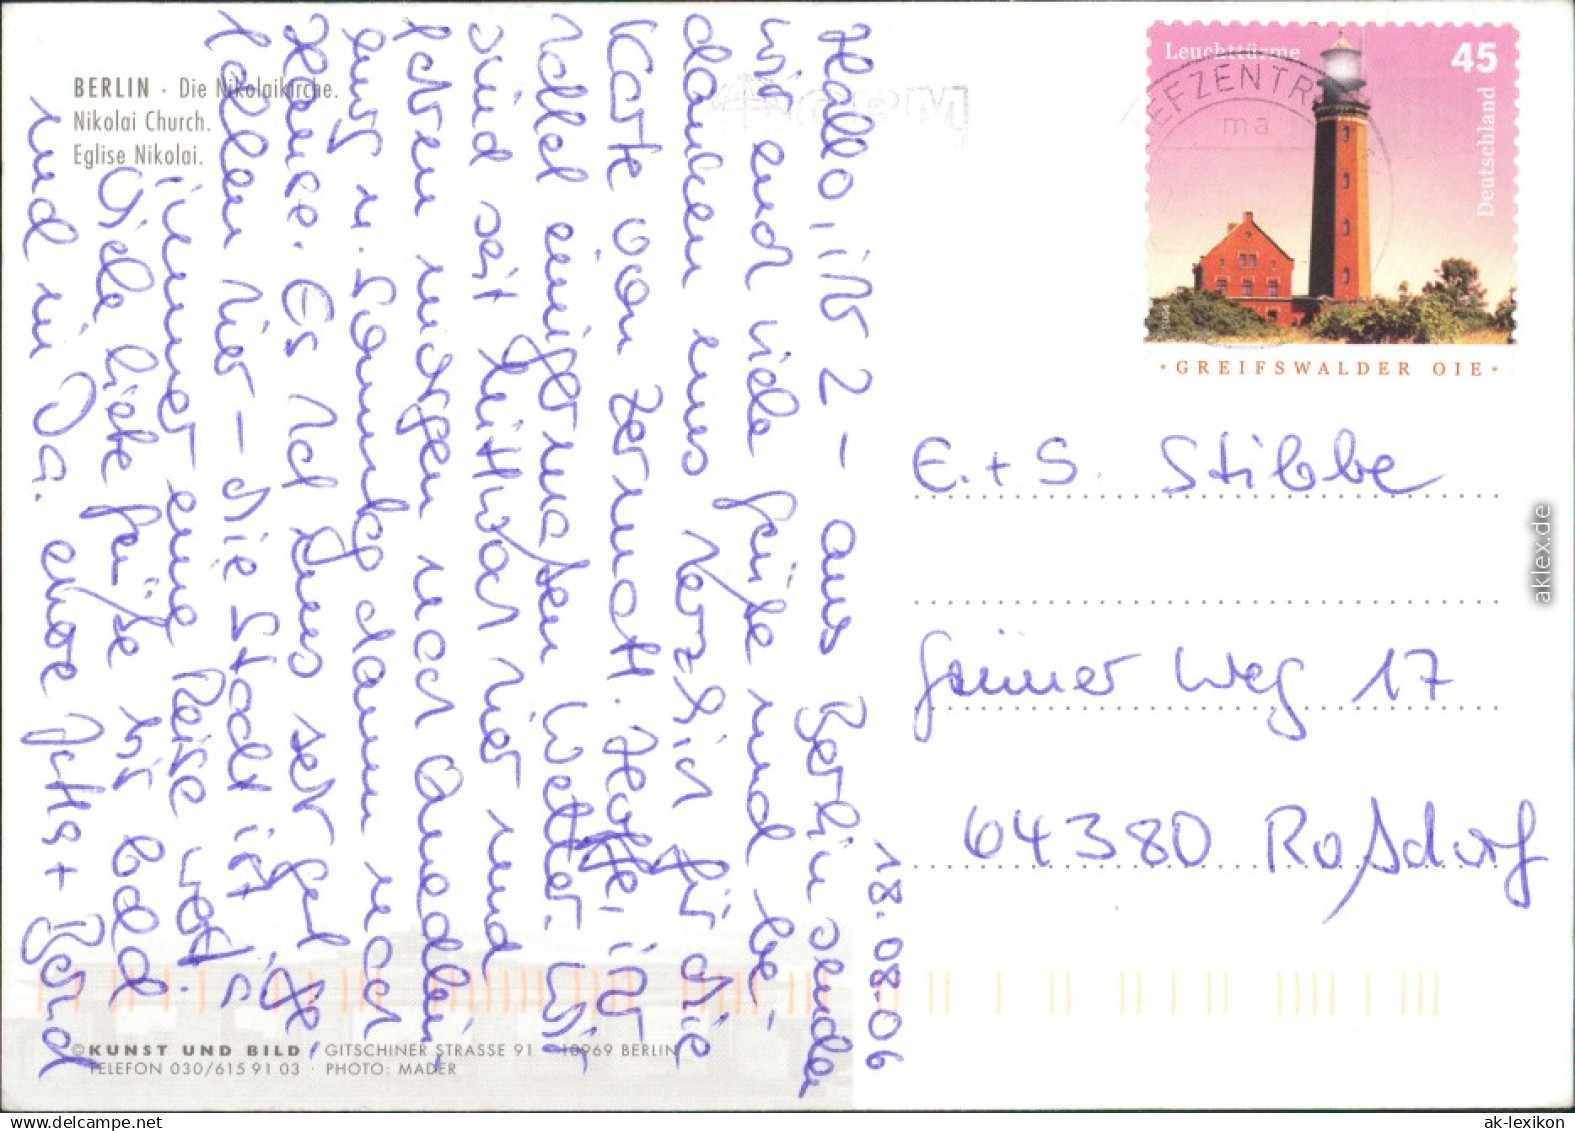 BERLIN · Die Nikolaikirche.
Nikolai Church.
Eglise Nikolai.
18.08.06
Hallo, ihr 2 – aus Berlin senden
wir euch viele Grüße und be-
danken uns herzlich für die
Karte von Zermatt. Hoffe, ihr
hattet einigermaßen Wetter. Wir
sind seit Mittwoch hier und
fahren morgen nach Quedlin-
burg u. Sonntag dann nach
Hause. Es hat uns sehr gut ge-
fallen hier – die Stadt ist
immer eine Reise wert.
Viele liebe Grüße bis bald
und in eure Jutta + Bernd
Leuchttürme
45
Deutschland
BRIEFZENTRUM
ma
· GREIFSWALDER OIE ·
E. + S. Stibbe
Weg 17
64380 Roßdorf
©KUNST UND BILD / GITSCHINER STRASSE 91 · 10969 BERLIN
TELEFON 030/615 91 03 · PHOTO: MADER
aklex.de
ak-lexikon